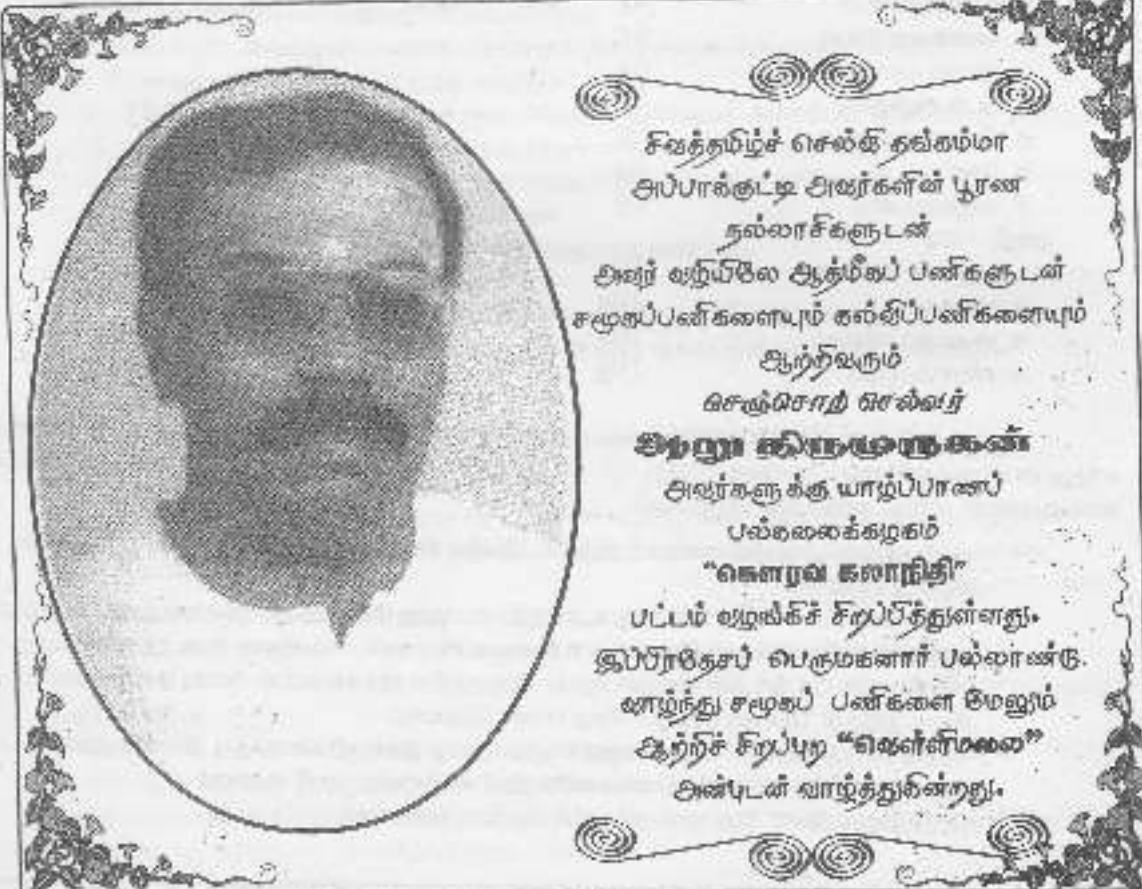 சிவத்தமிழ்ச் செல்வி தங்கம்மா
அப்பாக்குட்டி அவர்களின் பூரண
நல்லாசிகளுடன்
அவர் வழியிலே ஆத்மீகப் பணிகளுடன்
சமூகப்பணிகளையும் கல்விப்பணிகளையும்
ஆற்றிவரும்
செஞ்சொற் செல்வர்
ஆறு திருமுருகன்
அவர்களுக்கு யாழ்ப்பாணப்
பல்கலைக்கழகம்
“கௌரவ கலாநிதி”
பட்டம் வழங்கிச் சிறப்பித்துள்ளது.
இப்பிரதேசப் பெருமகனார் பல்லாண்டு
வாழ்ந்து சமூகப் பணிகளை மேலும்
ஆற்றிச் சிறப்புற “வெள்ளிமலை”
அன்புடன் வாழ்த்துகின்றது.